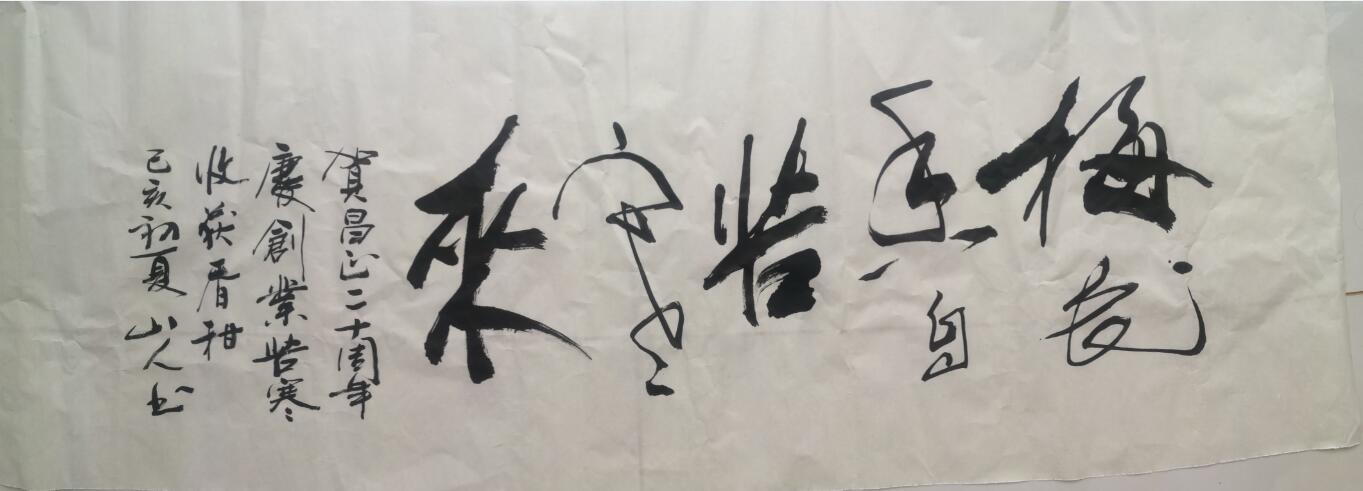 梅花
香自
苦
寒
來
賀昌正二十周年
慶創業苦寒
收获香甜
己亥初夏山人书